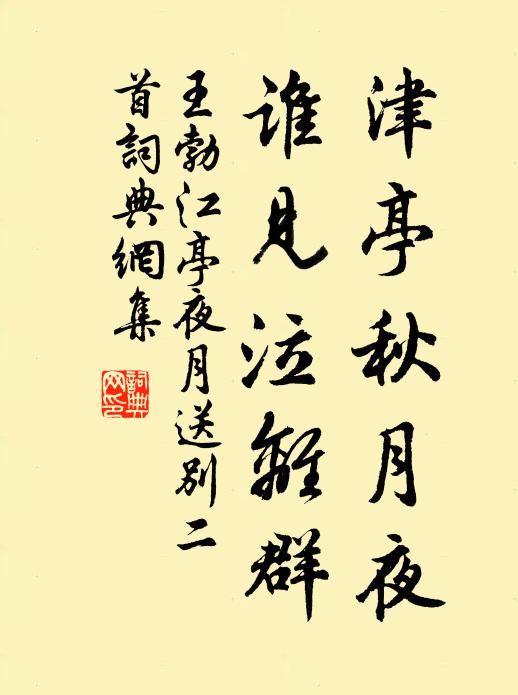 津亭秋月夜
谁見泣離群
王勃江亭夜月送別二
首詞典網集
詞典网印